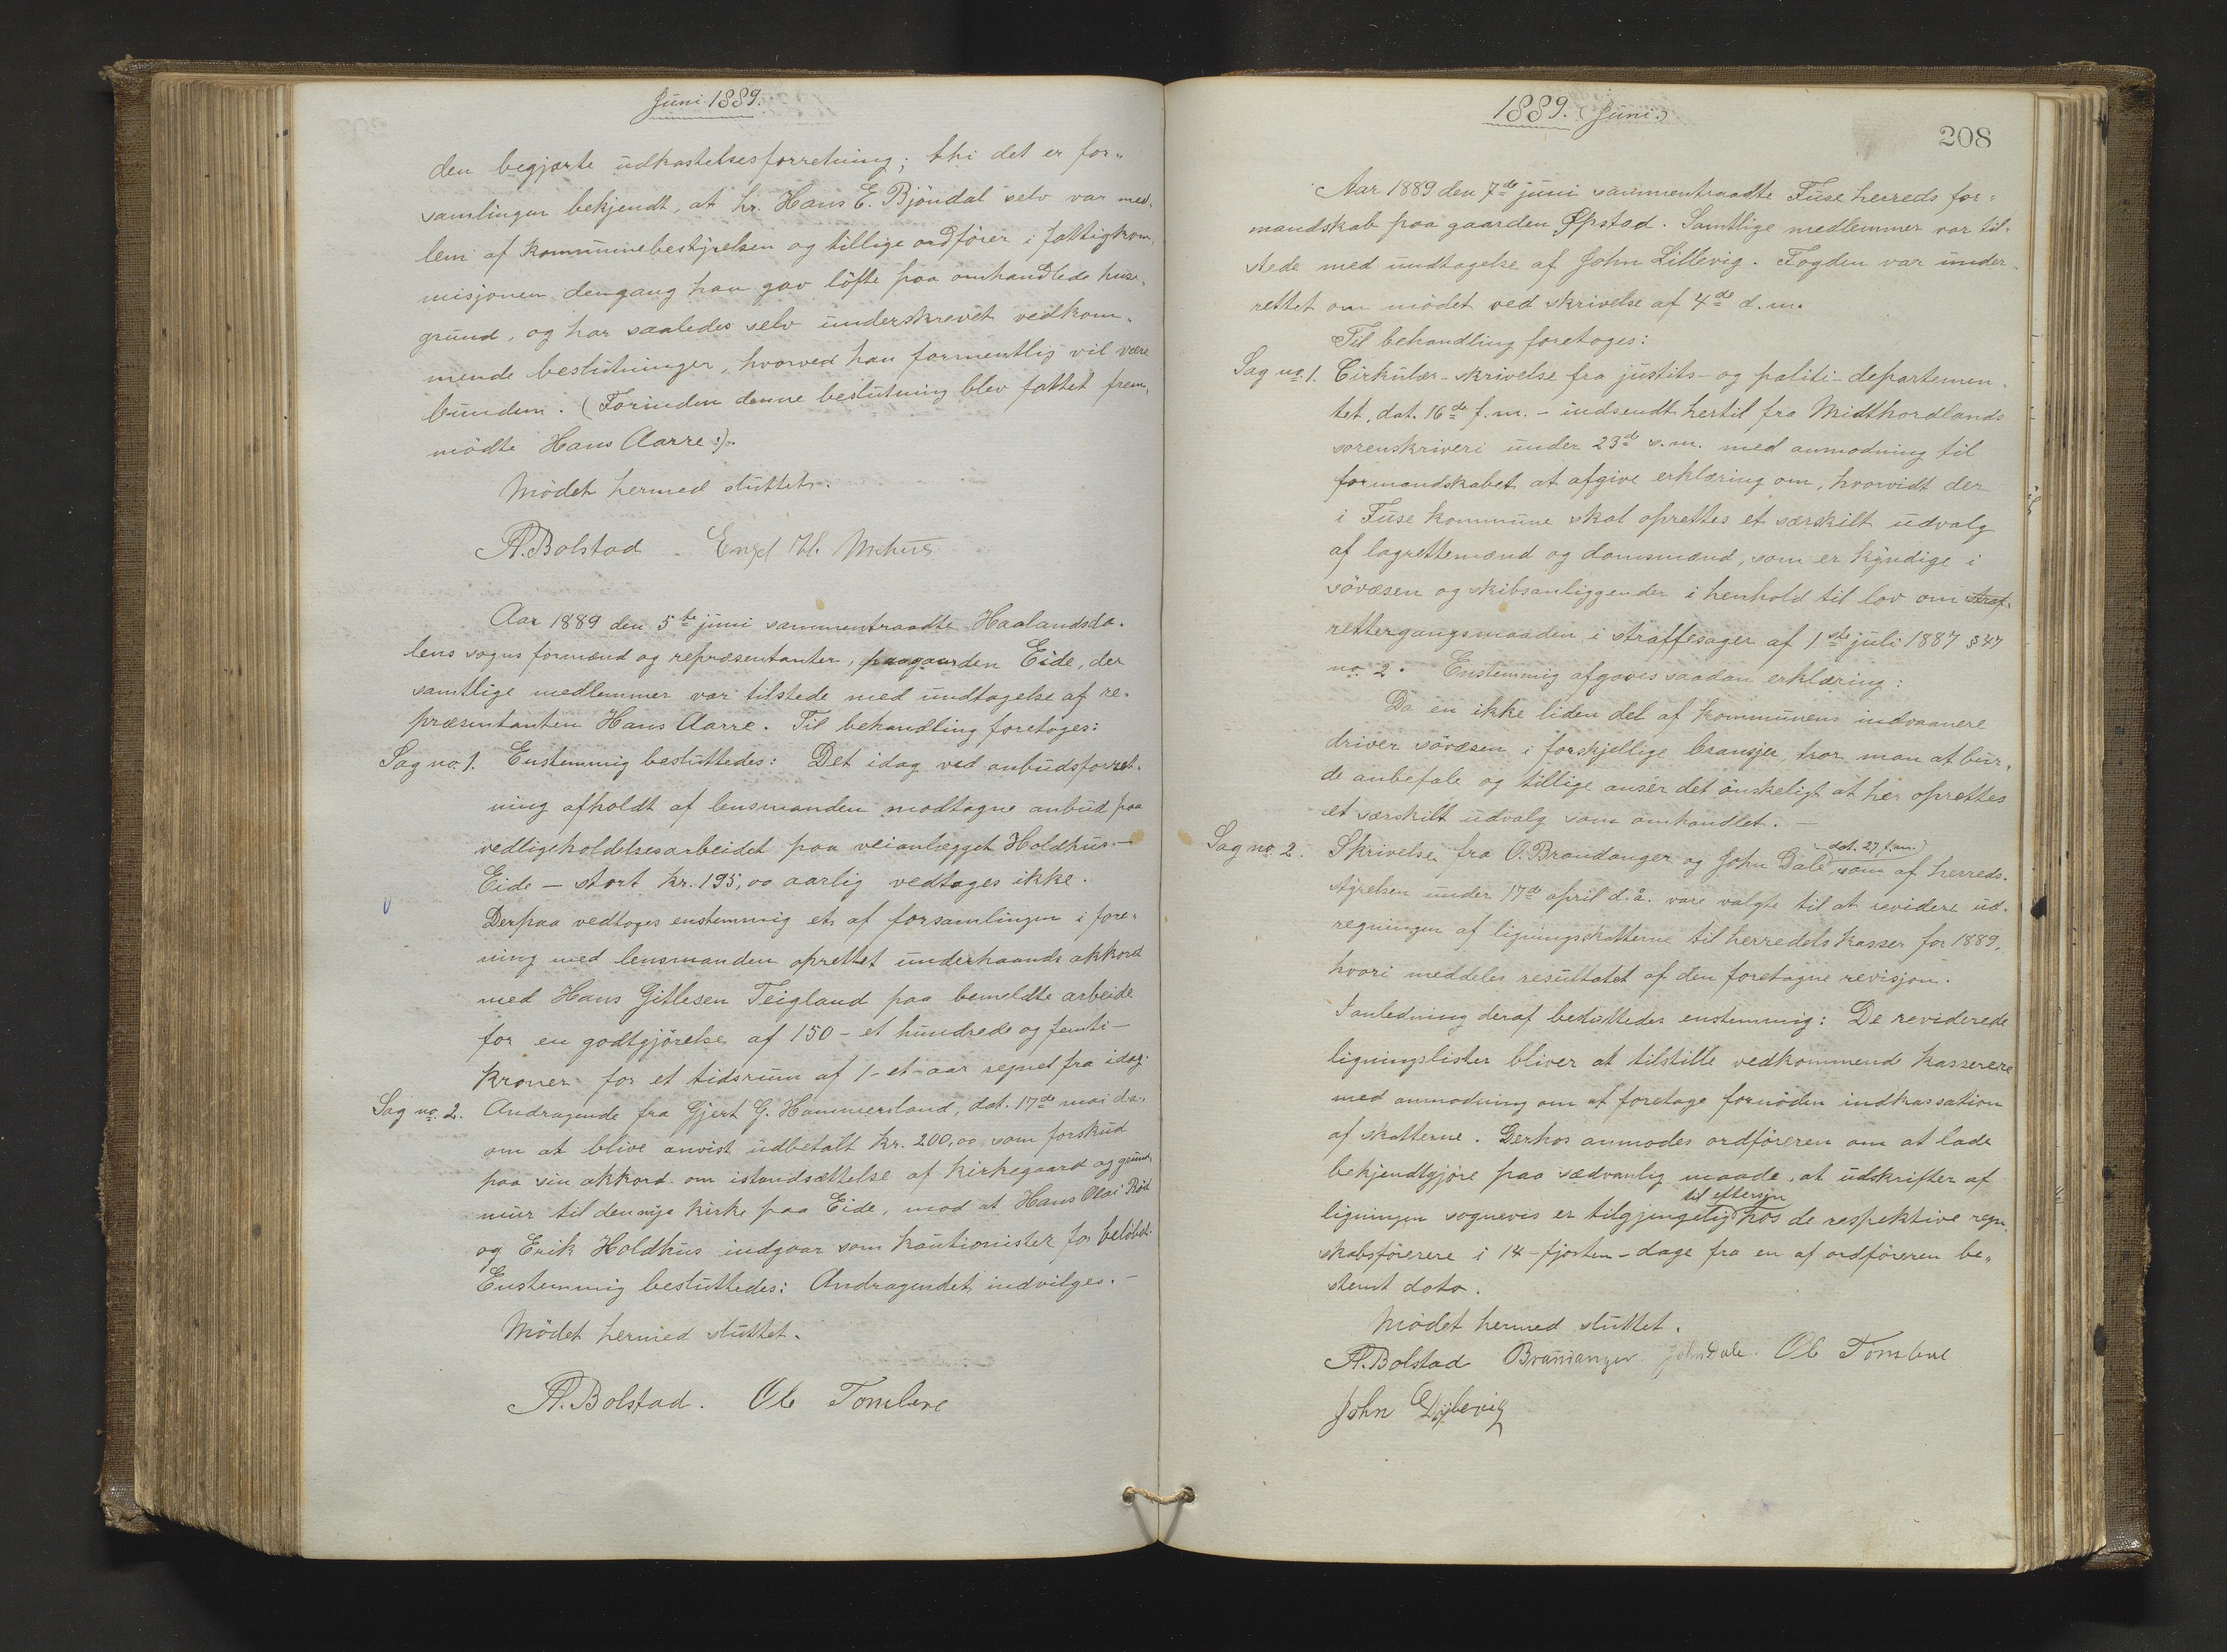 Juni 1889.
den begjærte udkastelsesforretning; thi det er for-
samlingen bekjendt, at hr. Hans E. Bjöndal selv var med-
lem af kommunebestyrelsen og tillige ordförer i fattigkom-
misjonen dengang han gav löfte paa omhandlede huse-
grund, og har saaledes selv underskrevet vedkom-
mende beslutninger, hvorved han formentlig vil være
bunden. (Forinden denne beslutning blev fattet frem-
mödte Hans Aarre.)
Mödet hermed sluttet.
A. Bolstad Engel M. Mehus
Aar 1889 den 5te juni sammentraadte Haalandsda-
lens sogns formænd og repræsentanter, paa gaarden Eide, der
samtlige medlemmer var tilstede med undtagelse af re-
præsentanten Hans Aarre. Til behandling foretoges:
Sag no. 1. Enstemmig besluttedes: Det idag ved anbudsforret-
ning afholdt af lensmanden modtagne anbud paa
vedligeholdelsesarbeidet paa veianlægget Holdhus-
Eide – stort kr. 195,00 aarlig vedtages ikke.
Derpaa vedtoges enstemmig et, af forsamlingen i fore-
ning med lensmanden oprettet underhaands akkord
med Hans Gitlesen Teigland paa bemeldte arbeide
for en godtgjörelse af 150 – et hundrede og femti –
kroner for et tidsrum af 1 – et – aar regnet fra idag.
Sag no. 2. Andragende fra Gjert G. Hammersland, dat. 17de mai d.a.
om at blive anvist udbetalt kr. 200,00 som forskud
paa sin akkord om istandsættelse af kirkegaard og grund-
mur til den nye kirke paa Eide, mod at Hans Olai Röd
og Erik Holdhus indgaar som kautionister for belöbet.
Enstemmig besluttedes: Andragendet indvilges. –
Mödet hermed sluttet.
A. Bolstad. Ole Tombre
1889. (Juni)
208
Aar 1889 den 7de juni sammentraadte Fuse herreds for-
mandskab paa gaarden Opstad. Samtlige medlemmer var til-
stede med undtagelse af John Lillevig. Fogden var under-
rettet om mödet ved skrivelse af 4de d.m.
Til behandling foretoges:
Sag no. 1. Cirkulær-skrivelse fra justits- og politi-departemen-
tet, dat. 16de f.m. – indsendt hertil fra Midthordlands
sorenskriveri under 23de s.m. med anmodning til
formandskabet at afgive erklæring om, hvorvidt der
i Fuse kommune skal oprettes et særskilt udvalg
af lagrettemænd og domsmænd, som er kyndige i
sövæsen og skibsanliggender i henhold til lov om straf-
rettergangsmaaden i straffesager af 1ste juli 1887 § 47
no. 2. Enstemmig afgaves saadan erklæring:
Da en ikke liden del af kommunens indvaanere
driver sövæsen i forskjellige bransjer, tror man at bur-
de anbefale og tillige ansér det önskeligt at her oprettes
et særskilt udvalg som omhandlet. –
Sag no. 2. Skrivelse fra O. Brandanger og John Dale (dat. 27 f.m.) som af herreds-
styrelsen under 17de april d.å. vare valgte til at revidere ud-
regningen af ligningsskatterne til herredets kasser for 1889,
hvori meddeles resultatet af den foretagne revisjon.
I anledning deraf besluttedes enstemmig: De reviderede
ligningslister bliver at tilstille vedkommend kasserere
med anmodning om at foretage fornöden indkassation
af skatterne. Derhos anmodes ordföreren om at lade
bekjendtgjöre paa sædvanlig maade, at udskrifter af
ligningen sognevis er tilgjengelig til eftersyn hos de respektive regn-
skabsförere i 14 – fjorten – dage fra en af ordföreren be-
stemt dato.
Mödet hermed sluttet.
A. Bolstad Brandanger John Dale. Ole Tombre
John Dybevig